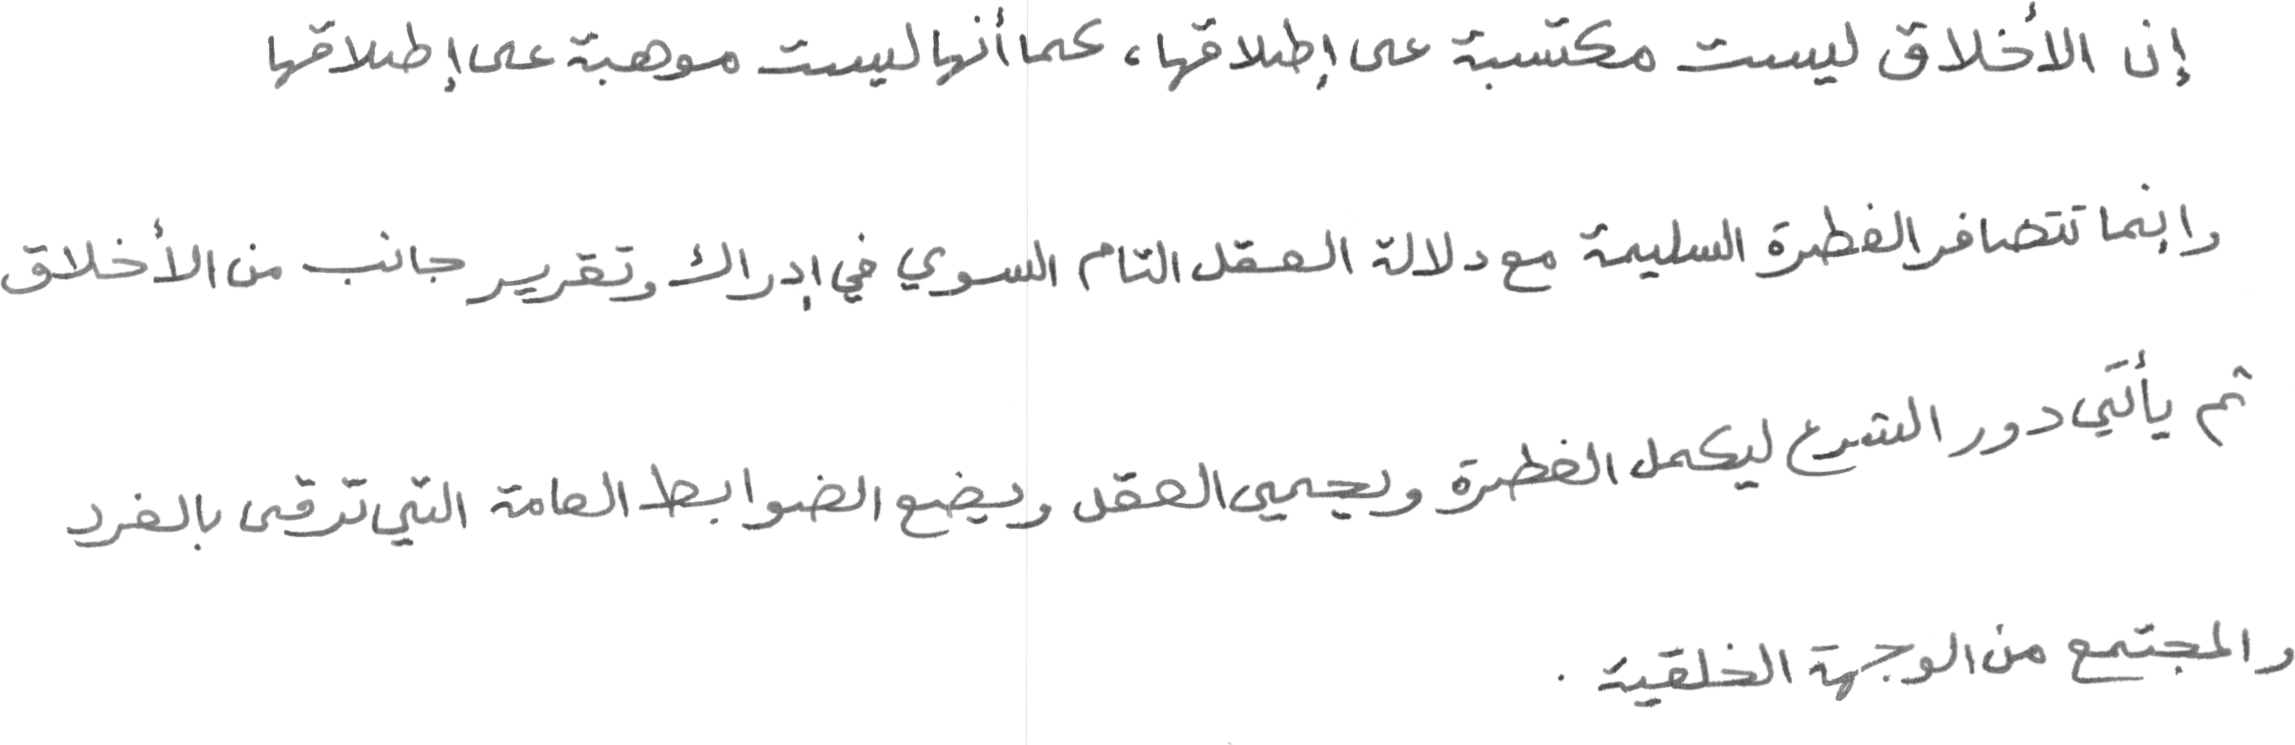 إن الأخلاق ليست مكتسبة على إطلاقها، كما أنها ليست موهبة على إطلاقها
وإنما تتضافر الفطرة السليمة مع دلالة العقل التام السوي في إدراك وتقرير جانب من الأخلاق
ثم يأتي دور الشرع ليكمل الفطرة ويحمي العقل ويضع الضوابط العامة التي ترقى بالفرد
والمجتمع من الوجهة الخلقية .